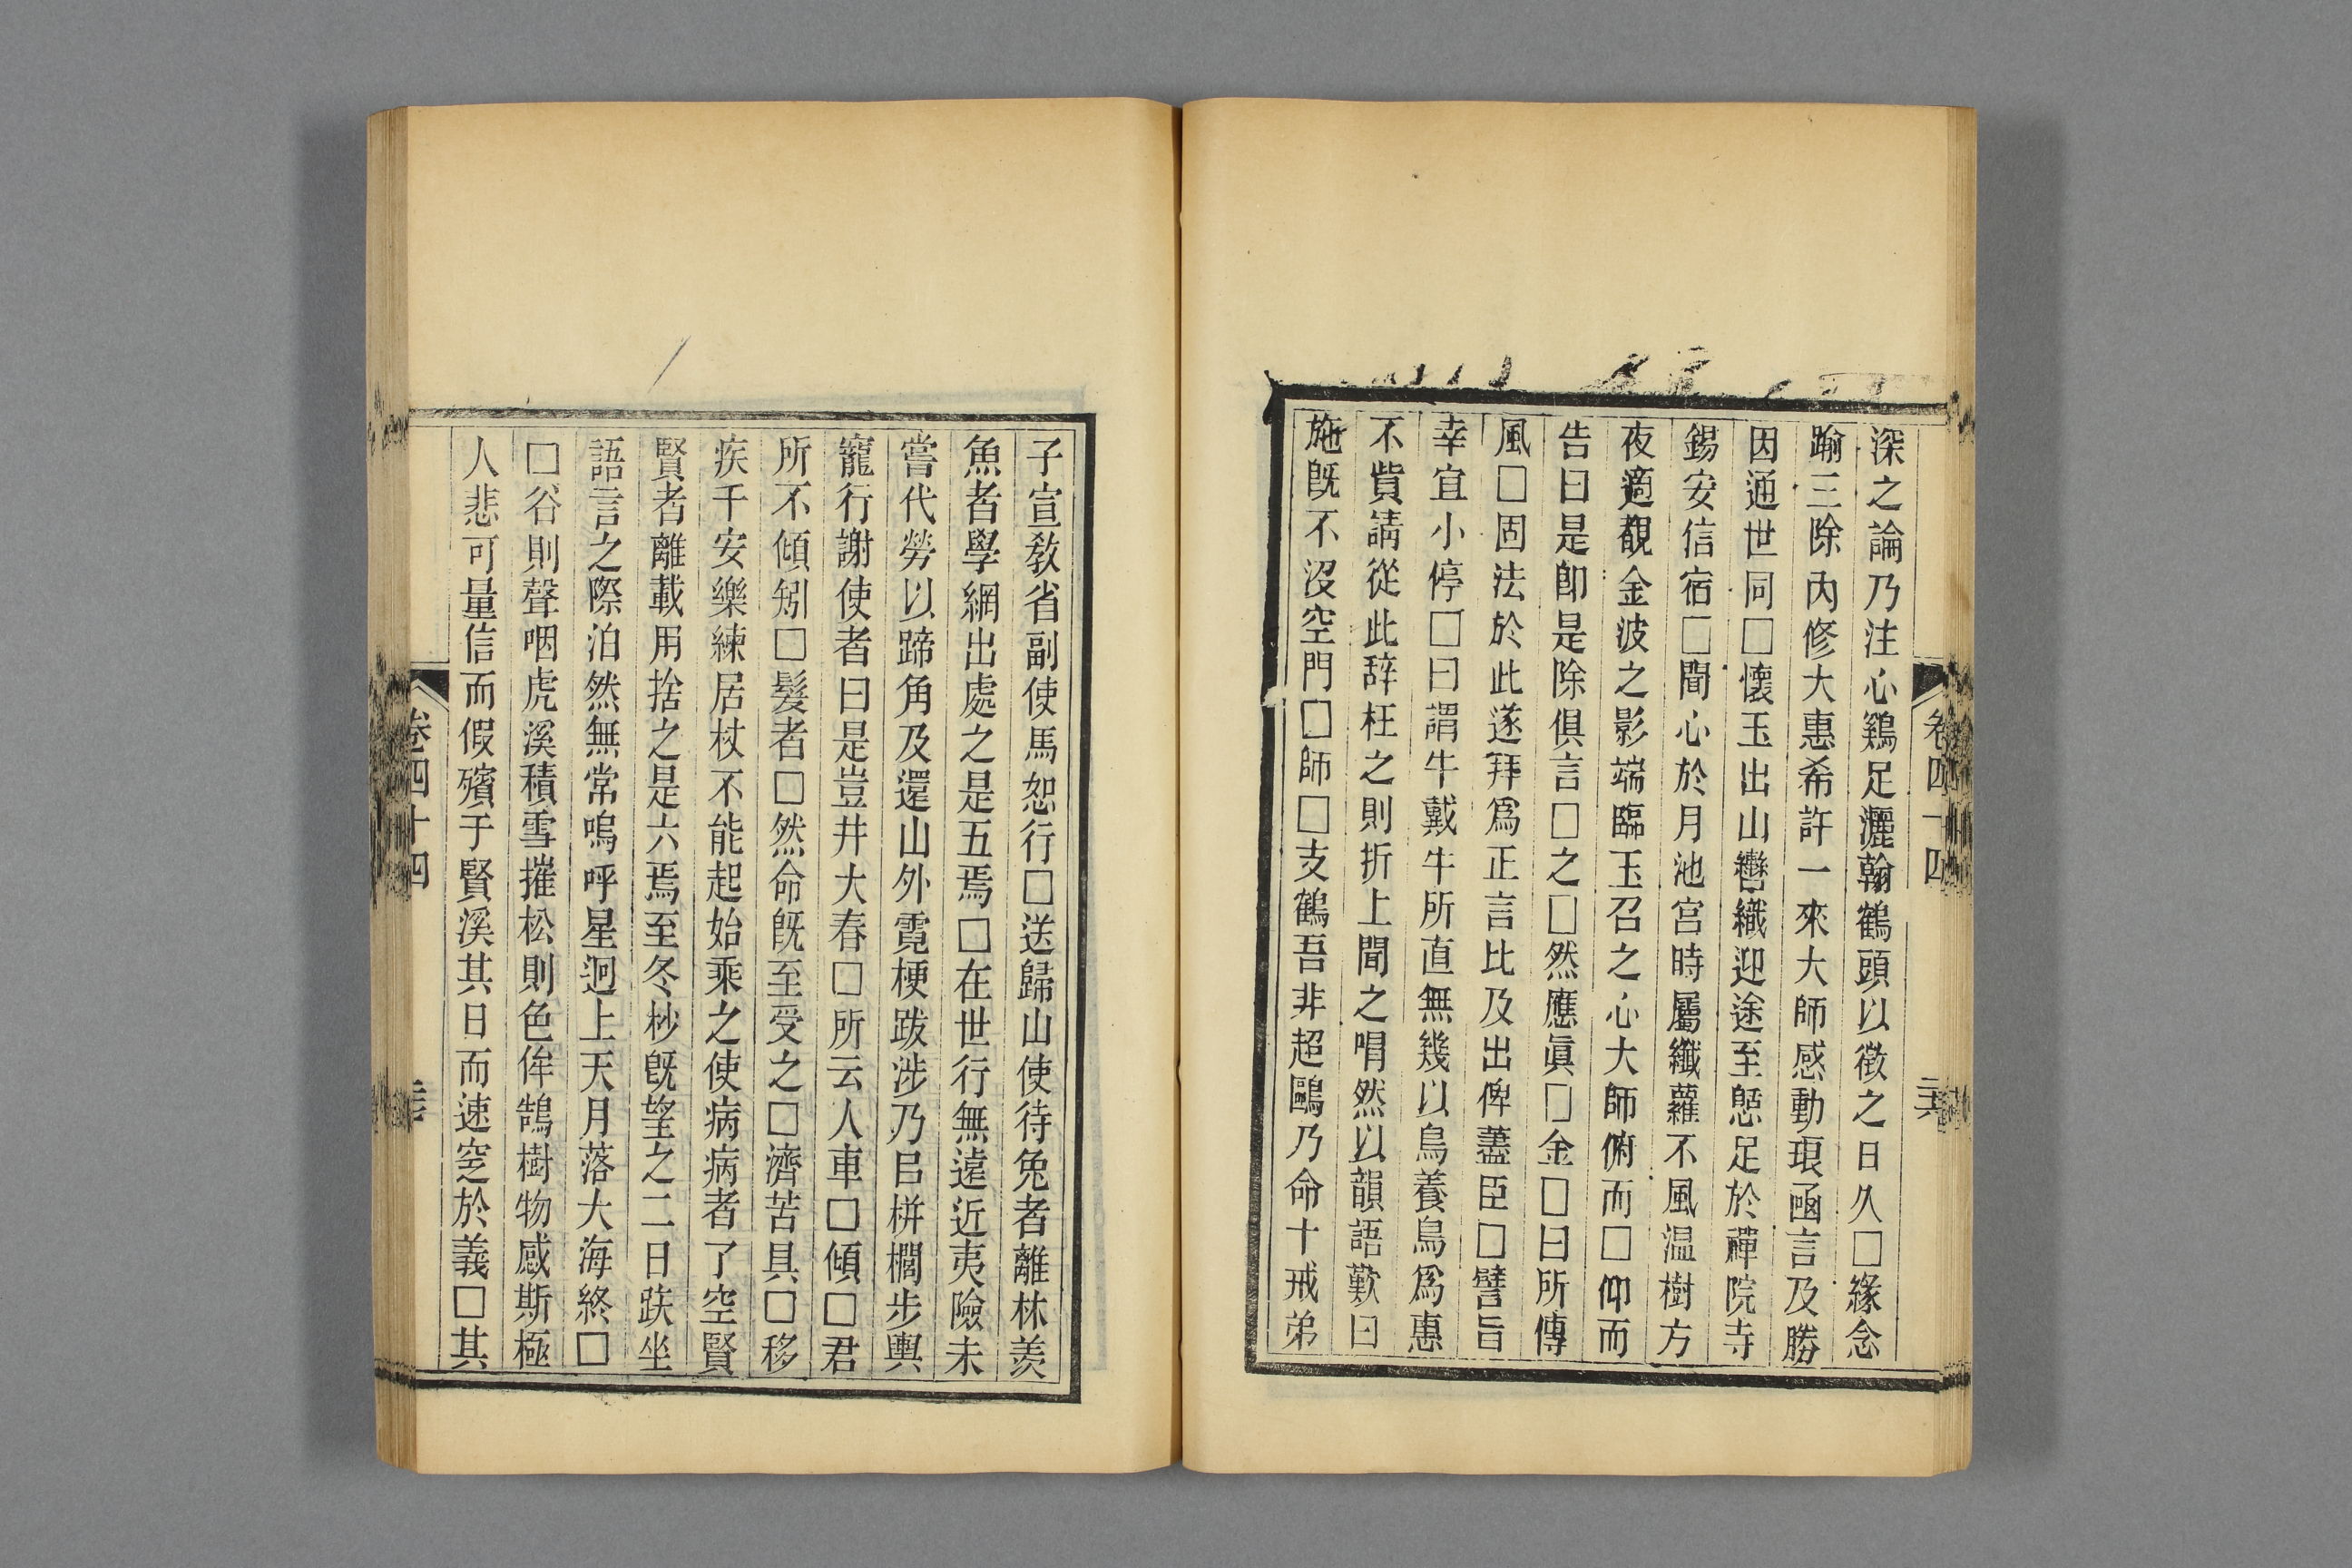 深之論乃注心鷄足灑翰鶴頭以徵之日久□緣念
踰三除內修大惠希許一來大師感動琅函言及勝
因通世同□懷玉出山轡織迎途至憩足於禪院寺
錫安信宿□間心於月池宮時屬纖蘿不風温樹方
夜適覩金波之影端臨玉召之心大師俯而□仰而
告曰是卽是除俱言□之□然應眞□金□曰所傳
風□固法於此遂拜爲正言比及出俾藎臣□譬旨
幸宜小停□曰謂牛戴牛所直無幾以鳥養鳥爲惠
不貲請從此辞枉之則折上聞之喟然以韻語歎曰
施旣不沒空門□師□支鶴吾非超鷗乃命十戒弟
卷四十四
三六
子宣敎省副使馬恕行□送歸山使待兔者離林羨
魚者學網出處之是五焉□在世行無遠近夷險未
嘗代勞以蹄角及還山外霓梗跋涉乃㠯栟櫚步輿
寵行謝使者曰是豈井大春□所云人車□傾□君
所不傾矧□髮者□然命旣至受之□濟苦具□移
疾千安樂練居杖不能起始乘之使病病者了空賢
賢者離載用捨之是六焉至冬杪旣望之二日趺坐
語言之際泊然無常嗚呼星迴上天月落大海終□
□谷則聲咽虎溪積雪摧松則色侔鵠樹物感斯極
人悲可量信而假殯于賢溪其日而速窆於義□其
卷四十四